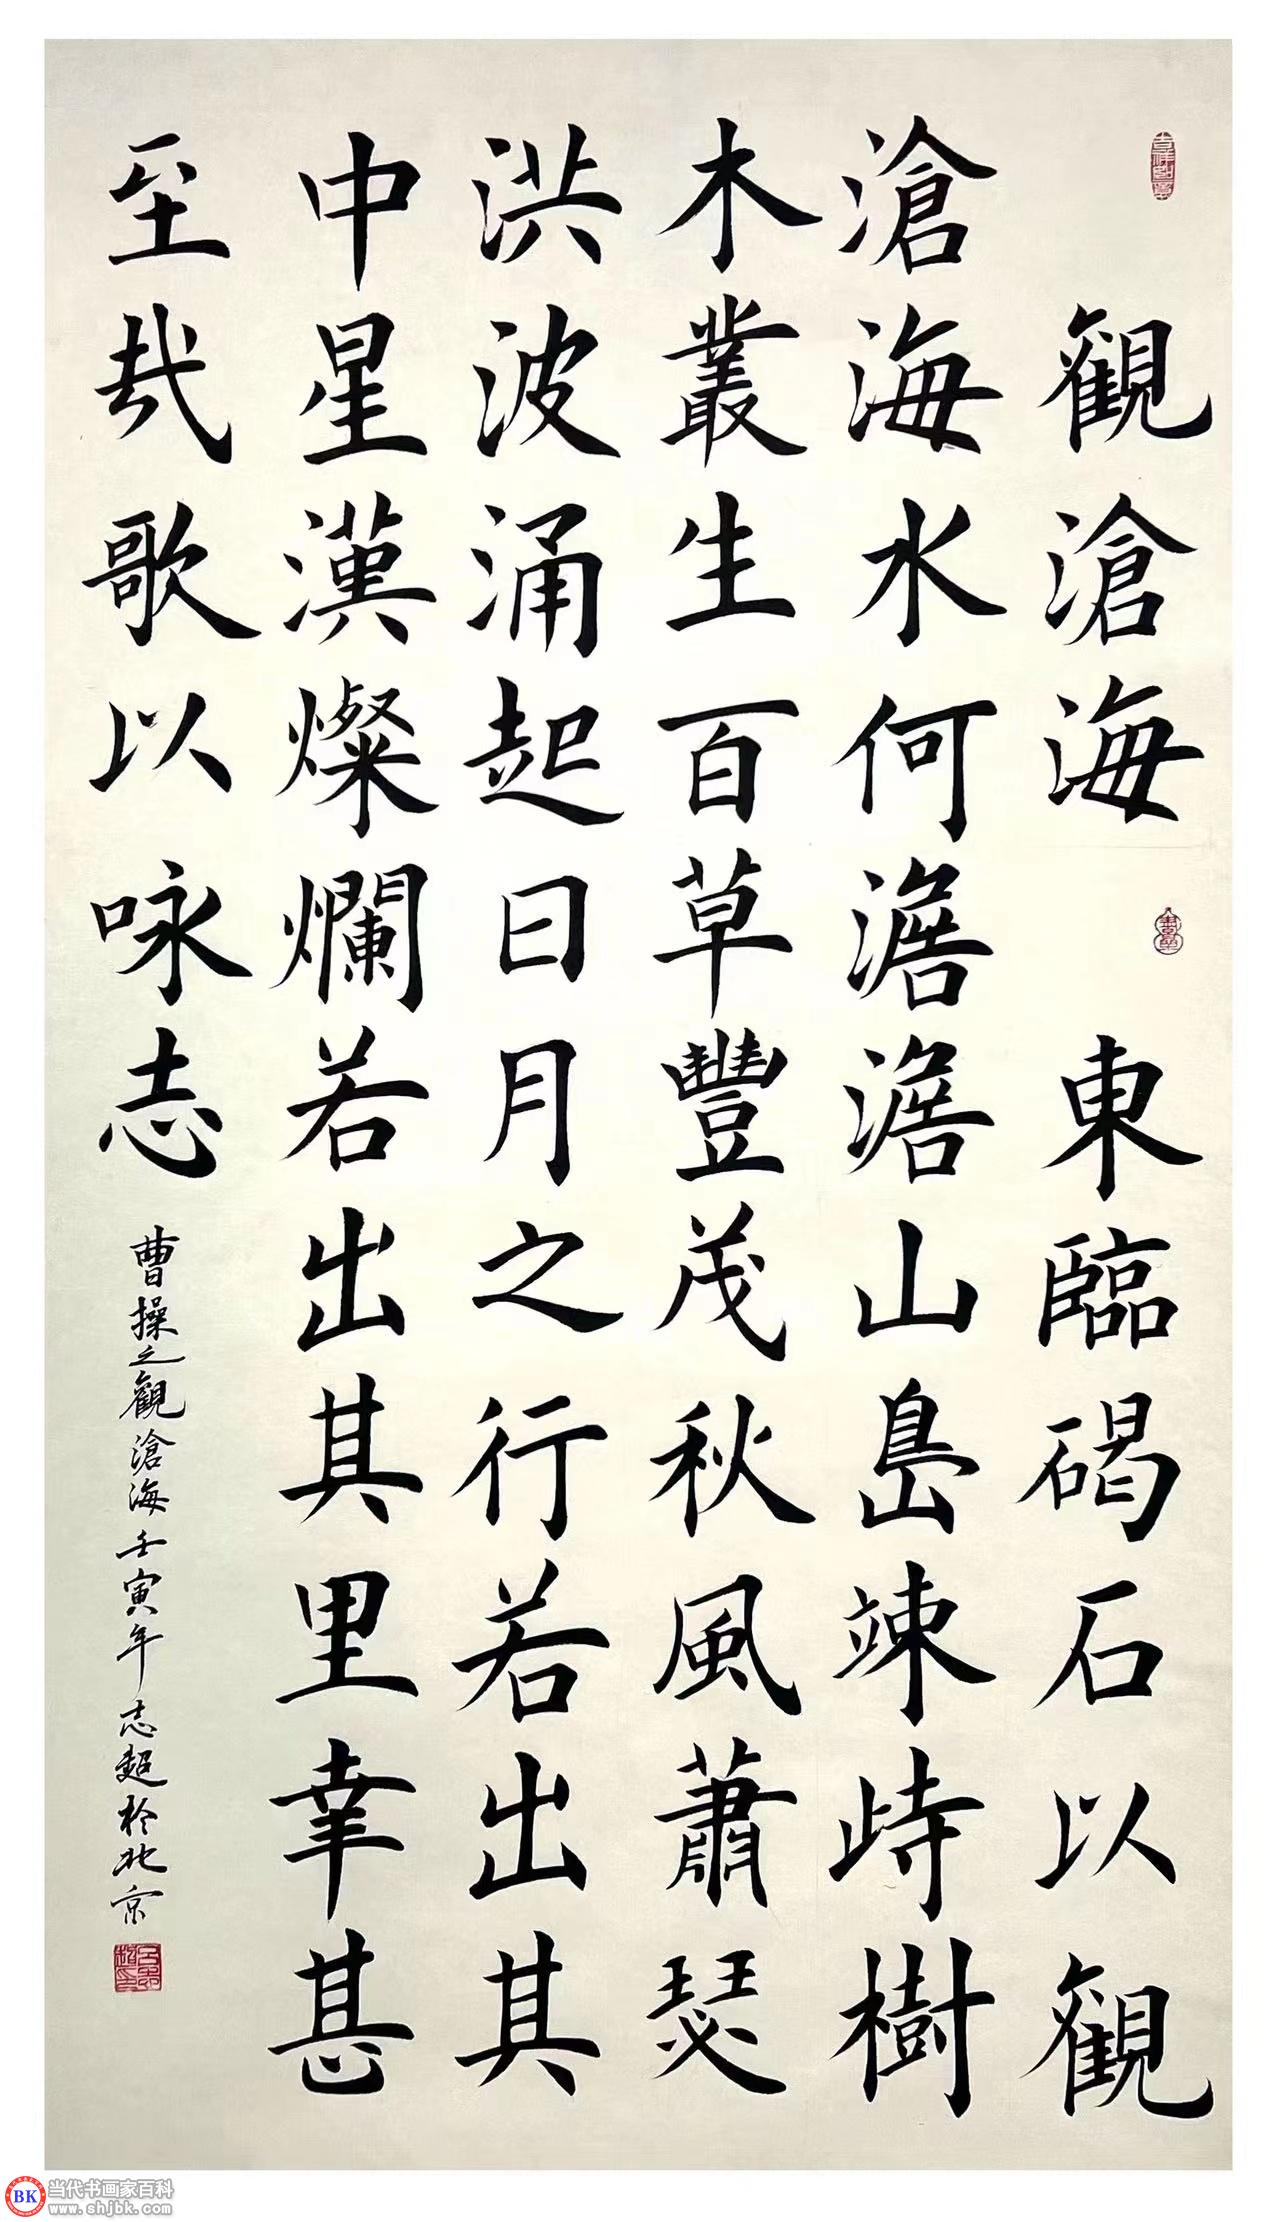 觀滄海 東臨碣石以觀
滄海水何澹澹山島竦峙樹
木叢生百草豐茂秋風蕭瑟
洪波涌起日月之行若出其
中星漢燦爛若出其里幸甚
至哉歌以咏志
曹操之觀滄海壬寅年志超於北京
BK 当代书画家百科
www.shjbk.com